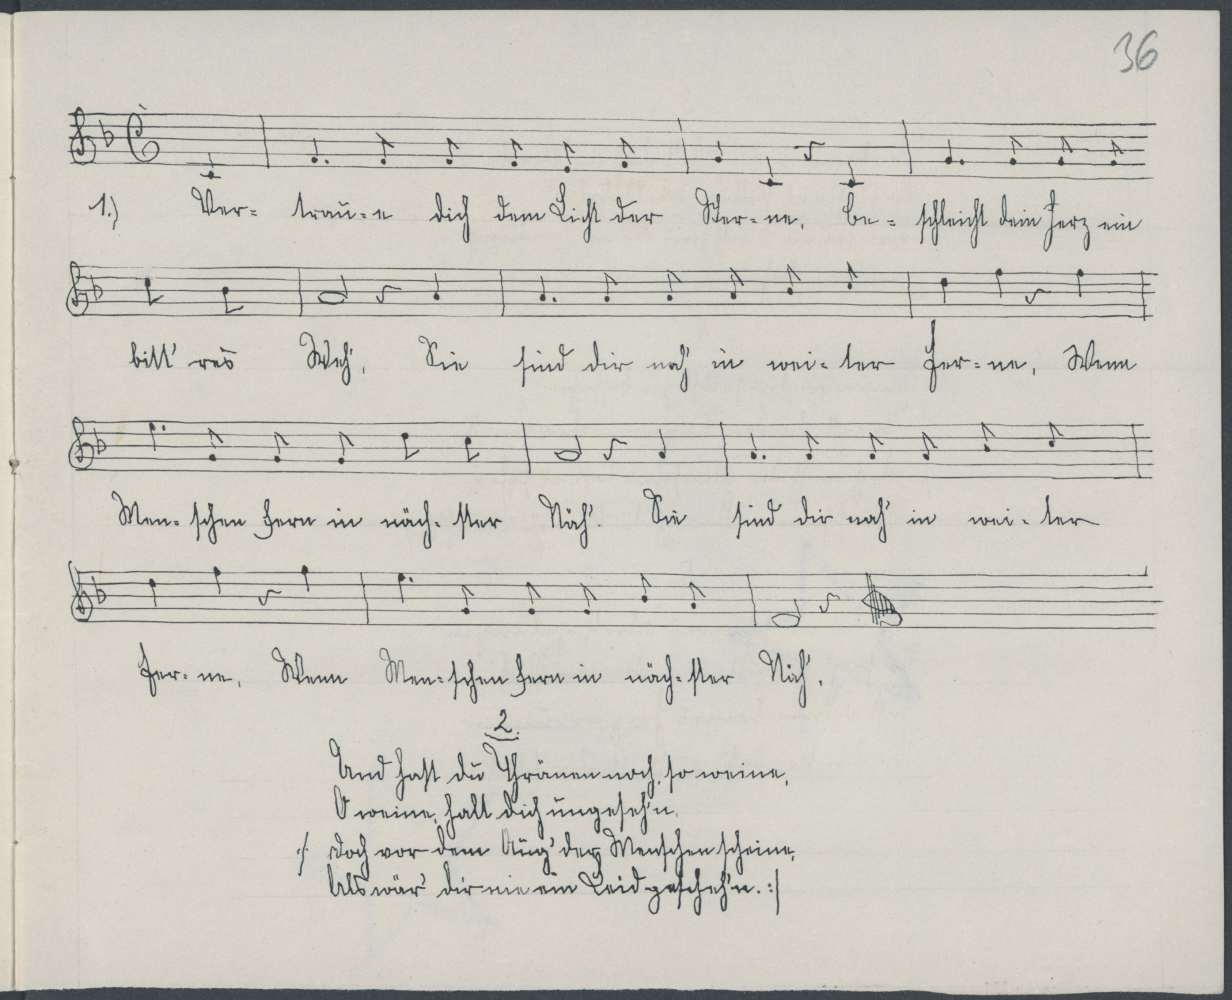 36
1.) Ver- trau-e dich dem Licht der Ster-ne, be- schleicht dein Herz ein
bitt'res Weh', Sie sind dir nah' in wei-ter Fer-ne, Wenn
Men-schen fern in näch-ster Näh'. Sie sind dir nah' in wei-ter
Fer-ne, Wenn Men-schen fern in näch-ster Näh'.
2.
Und hast du Thränen noch, so weine,
O weine, halt dich ungeseh'n,
/: Doch vor dem Aug' der Menschen scheine,
Als wär' dir nie ein Leid gescheh'n. :/